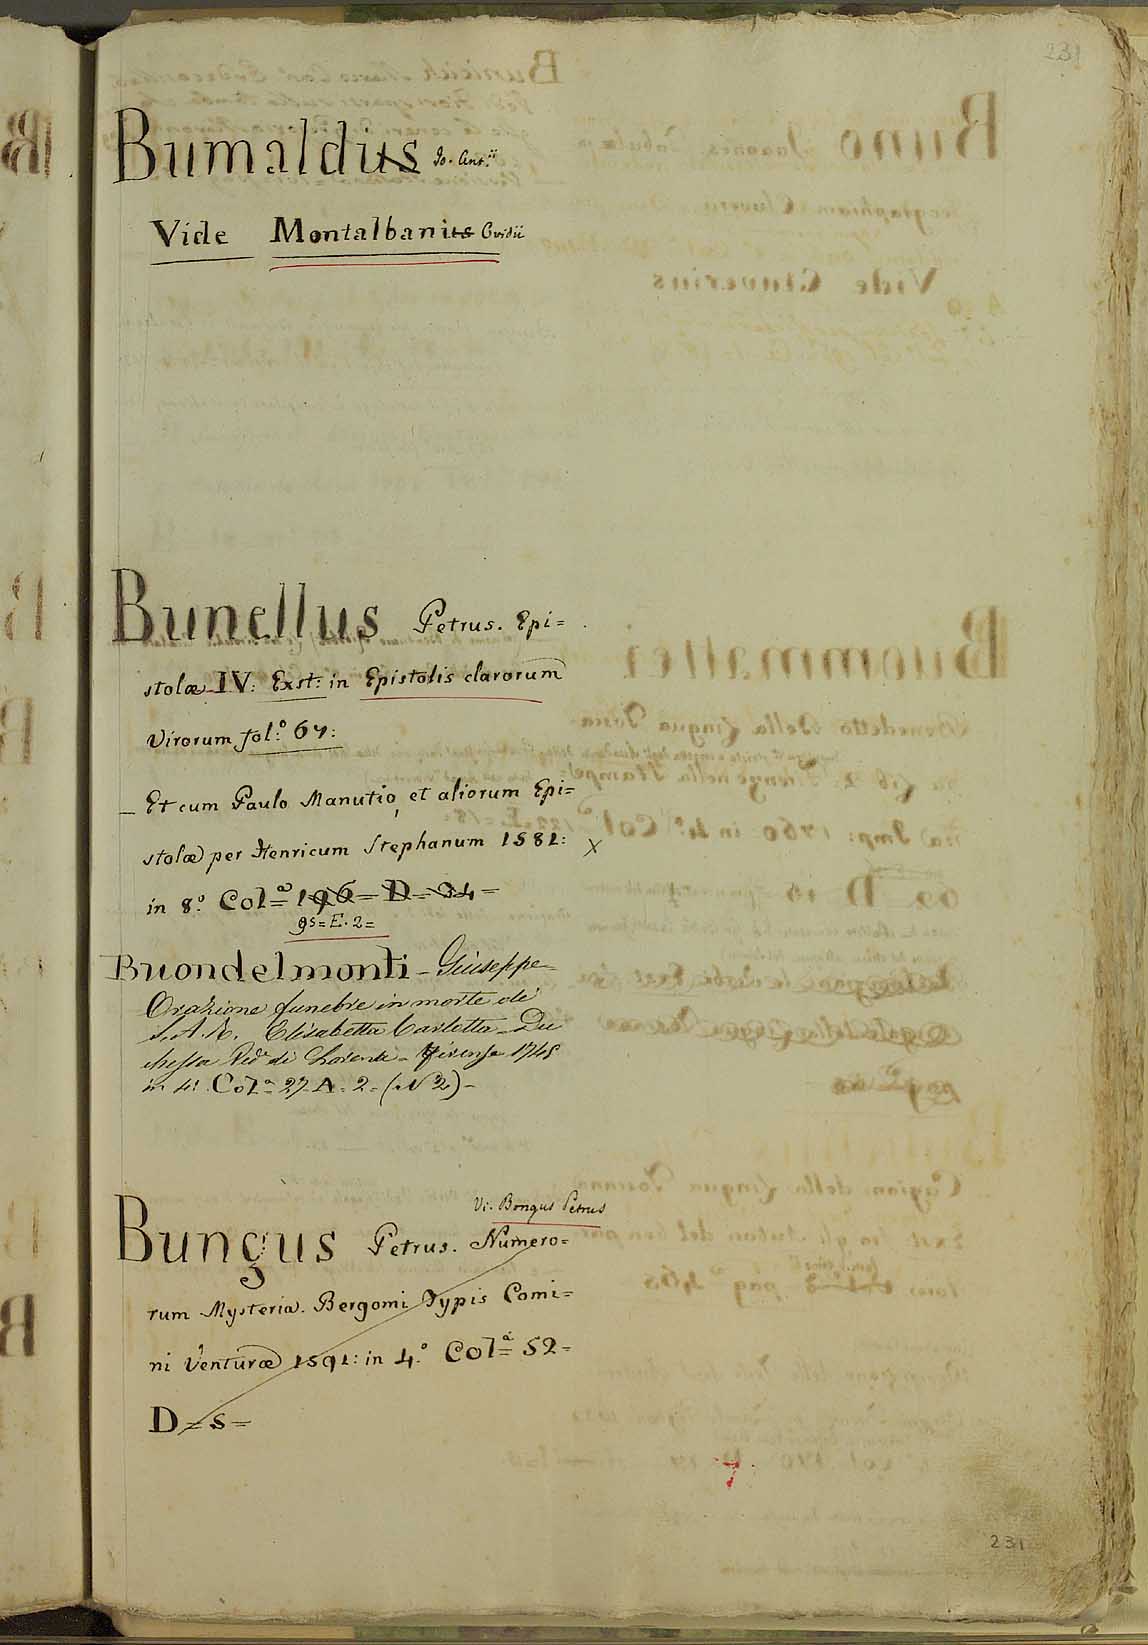 231
Bumaldus Jo. Ant.ii
Vide Montalbanius Ovidii
Bunellus Petrus. Epi=
stolæ IV: Exst: in Epistolis clarorum
Virorum fol.º 67:
_ Et cum Paulo Manutio, et aliorum Epi=
stolæ per Henricum Stephanum 1581: X
in 8.º Col.ª= 196= D= 34=
95= E. 2=
Buondelmonti - Giuseppe
Orazione funebre in morte di
S.A.R. Elisabetta Carlotta Du
chessa Ved.ª di Lorena - Firenze 1745
in 4.º Col.ª= 27. A. 2= (N 2)-
Vi. Bongus Petrus
Bungus Petrus. Numero=
rum Mysteria. Bergomi Typis Comi=
ni Venturæ 1591: in 4.º Col.ª= 52=
D= s=
231